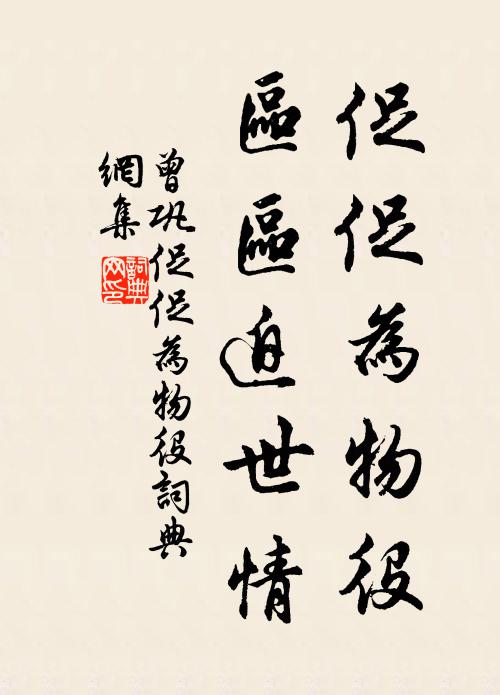 促促為物役
區區迫世情
曾巩促促為物役詞典
網集
詞典
网印